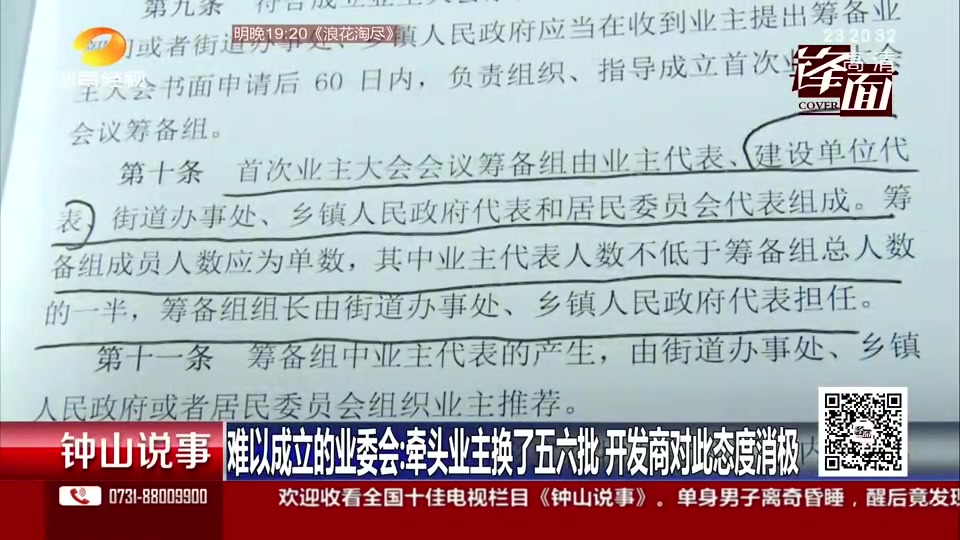 明晚19:20《浪花淘尽》
23 20 32
高清
锋面
COVER
第九条 符合成立业主大会
或者街道办事处、乡镇人民政府应当在收到业主提出筹备业
主大会书面申请后 60 日内，负责组织、指导成立首次业主大会
会议筹备组。
第十条 首次业主大会会议筹备组由业主代表、建设单位代
表、街道办事处、乡镇人民政府代表和居民委员会代表组成。筹
备组成员人数应为单数，其中业主代表人数不低于筹备组总人数
的一半，筹备组组长由街道办事处、乡镇人民政府代表担任。
第十一条 筹备组中业主代表的产生，由街道办事处、乡镇
人民政府或者居民委员会组织业主推荐。
钟山说事
难以成立的业委会:牵头业主换了五六批 开发商对此态度消极
0731-88009900
欢迎收看全国十佳电视栏目《钟山说事》。单身男子离奇昏睡，醒后竟发现